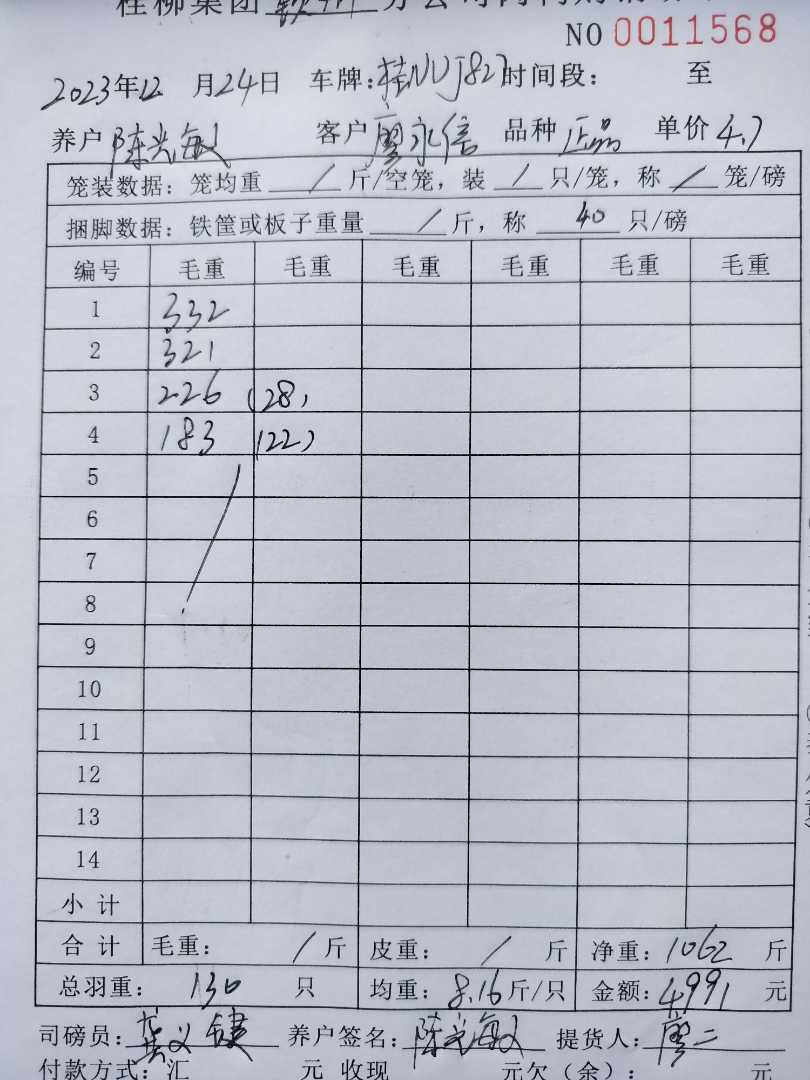 桂柳集团 钦州 分公司
NO 0011568
2023年12月24日 车牌:桂NUJ827 时间段: 至
养户 陈光敏 客户 廖永信 品种 正品 单价 4.7
笼装数据: 笼均重 / 斤/空笼, 装 / 只/笼, 称 / 笼/磅
捆脚数据: 铁筐或板子重量 / 斤, 称 40 只/磅
编号 毛重 毛重 毛重 毛重 毛重 毛重
1 332
2 321
3 226 (28)
4 183 (22)
5
6
7
8
9
10
11
12
13
14
小计
合计 毛重: / 斤 皮重: / 斤 净重: 1062 斤
总羽重: 130 只 均重: 8.16 斤/只 金额: 4991 元
司磅员: 养户签名: 陈光敏 提货人: 廖二
付款方式: 汇 元 收现 元欠(余): 元